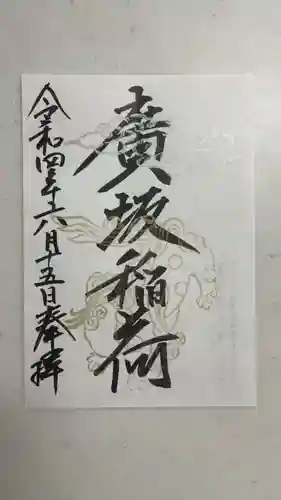 廣坂稲荷
令和四年六月十五日奉拝